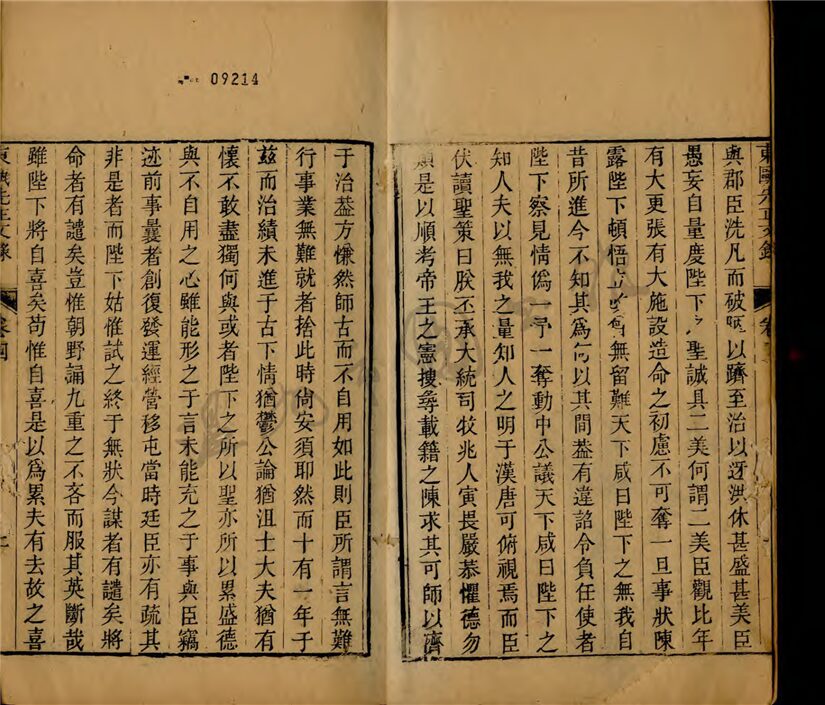 09214
東甌先正文錄
與郡臣洗凡而破以躋至治以迓洪休甚盛甚美臣
愚妄自量度陛下之聖誠具二美何謂二美臣觀比年
有大更張有大施設造命之初慮不可奪一旦事狀陳
露陛下頓悟立無留難天下咸曰陛下之無我自
昔所進今不知其為何以其間葢有違詔令負任使者
陛下察見情僞一予一奪動中公議天下咸曰陛下之
知人夫以無我之量知人之明于漢唐可俯視焉而臣
伏讀聖策曰朕丕承大統司牧兆人寅畏嚴恭懼德勿
類是以順考帝王之憲搜尋載籍之陳求其可師以濟
于治葢方慊然師古而不自用如此則臣所謂言無難
行事業無難就者捨此時尚安須耶然而十有一年于
兹而治績未進于古下情猶鬱公論猶沮士大夫猶有
懷不敢盡獨何與或者陛下之所以聖亦所以累盛德
與不自用之心雖能形之于言未能充之于事與臣竊
迹前事曩者創復發運經營移屯當時廷臣亦有疏其
非是者而陛下姑惟試之終于無狀今謀者有譴矣將
命者有譴矣豈惟朝野誦九重之不吝而服其英斷哉
雖陛下將自喜矣苟惟自喜是以爲累夫有去故之喜
東甌先正文錄 卷四